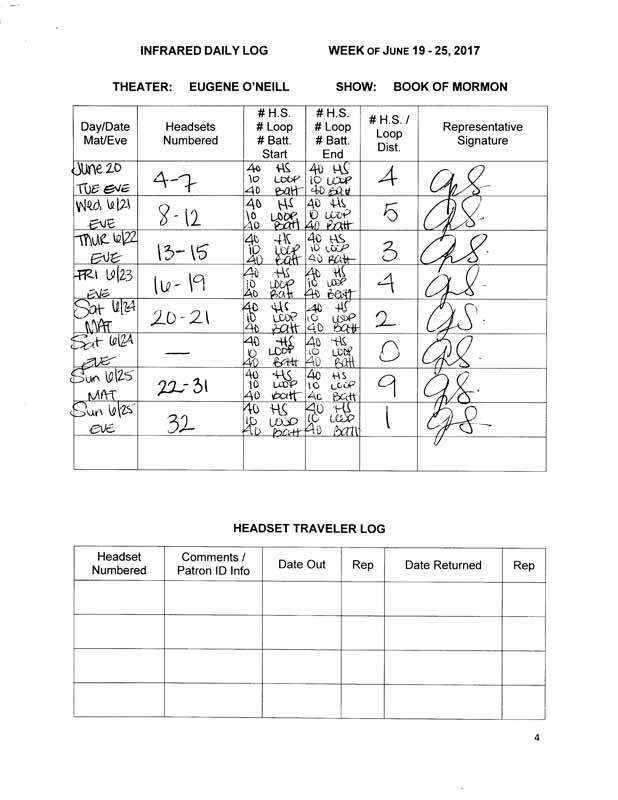 INFRARED DAILY LOG WEEK OF JUNE 19 - 25, 2017
THEATER: EUGENE O'NEILL SHOW: BOOK OF MORMON
Day/Date
Mat/Eve
Headsets
Numbered
# H.S.
# Loop
# Batt.
Start
# H.S.
# Loop
# Batt.
End
# H.S. /
Loop
Dist.
Representative
Signature
June 20
TUE EVE
4-7
40 HS
10 LOOP
40 Batt
40 HS
10 LOOP
40 Batt
4
Wed 6/21
EVE
8-12
40 HS
10 LOOP
40 Batt
40 HS
10 LOOP
40 Batt
5
THUR 6/22
EVE
13-15
40 HS
10 LOOP
40 Batt
40 HS
10 LOOP
40 Batt
3
FRI 6/23
EVE
16-19
40 HS
10 LOOP
40 Batt
40 HS
10 LOOP
40 Batt
4
Sat 6/24
MAT
20-21
40 HS
10 LOOP
40 Batt
40 HS
10 LOOP
40 Batt
2
Sat 6/24
EVE
—
40 HS
10 LOOP
40 Batt
40 HS
10 LOOP
40 Batt
0
Sun 6/25
MAT
22-31
40 HS
10 LOOP
40 Batt
40 HS
10 LOOP
40 Batt
9
Sun 6/25
EVE
32
40 HS
10 LOOP
40 Batt
40 HS
10 LOOP
40 Batt
1
HEADSET TRAVELER LOG
Headset
Numbered
Comments /
Patron ID Info
Date Out
Rep
Date Returned
Rep
4